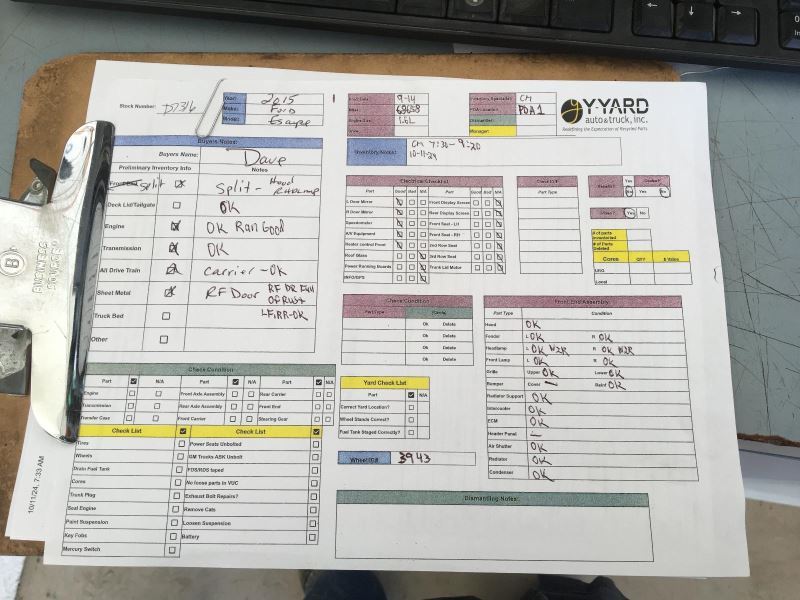 Stock Number:
Year: 2015
Make: Ford
Model: Escape
9-14
1.6L
Inventory Specialist: CM
PDA1
Dismantler:
Manager:
YARD
auto&truck, inc.
Redefining the Expectation of Recycled Parts
Buyers Notes:
Buyers Name: Dave
Preliminary Inventory Info Notes
Split Split - Hood
Deck Lid/Tailgate OK
Engine OK Ran Good
Transmission OK
All Drive Train Carrier - OK
Sheet Metal RF Door RF DR Full
Of Rust
LF.RR-OK
Truck Bed
Other
Inventory Notes: CM 7:30- 9:20
10-11-24
Electrical Checklist
Part Good Bad N/A Part Type Good Bad N/A
L Door Mirror Front Display Screen
R Door Mirror Rear Display Screen
Speedometer Front Seat - LH
A/V Equipment Front Seat - RH
Heater control Front 2nd Row Seat
Roof Glass 3rd Row Seat
Power Running Boards Trunk Lid Motor
INFO/GPS
Yes No Yes No
Yes No
# of parts
Inventoried
# of Parts
Deleted
Cores QTY $ Value
LKQ
Local
Check Condition
Part Type
Ok Delete
Ok Delete
Ok Delete
Ok Delete
Front End Assembly:
Part Type Condition
Hood OK
Fender L OK R OK
Headlamp L OK W2R R OK W2R
Front Lamp L OK R OK
Grille Upper OK Lower OK
Bumper Cover — Reinf OK
Radiator Support OK
Intercooler OK
ECM OK
Header Panel —
Air Shutter OK
Radiator OK
Condenser OK
Check Condition
Part N/A Part N/A Part N/A
Engine Front Axle Assembly Rear Carrier
Transmission Rear Axle Assembly Front End
Transfer Case Front Carrier Steering Gear
Yard Check List
Part N/A
Correct Yard Location?
Wheel Stands Correct?
Fuel Tank Staged Correctly?
Check List Check List
Tires Power Seats Unbolted
Wheels GM Trucks ASK Unbolt
Drain Fuel Tank FDS/RDS taped
Cores No loose parts in VUC
Trunk Plug Exhaust Bolt Repairs?
Seal Engine Remove Cats
Paint Suspension Loosen Suspension
Key Fobs Battery
Mercury Switch
Wheel ID# 3943
Dismantling Notes:
10/11/24, 7:33 AM